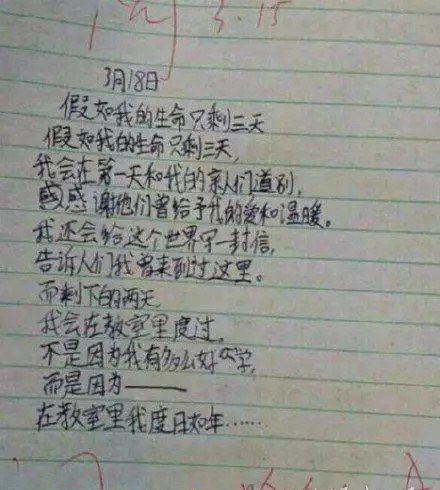 阅 3.15
3月18日
假如我的生命只剩三天
假如我的生命只剩三天,
我会在第一天和我的亲人们道别,
感谢他们曾给予我的爱和温暖。
我还会给这个世界写一封信,
告诉人们我曾来到过这里。
而剩下的两天
我会在教室里度过,
不是因为我有多么好学,
而是因为——
在教室里我度日如年……